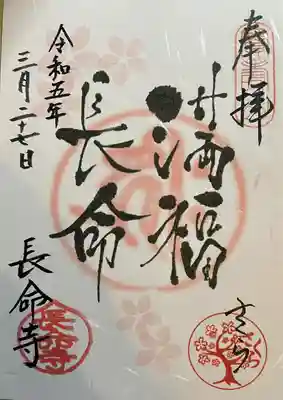 奉拝
満福
長命
さくら
令和五年
三月二十七日
長命寺
長命寺